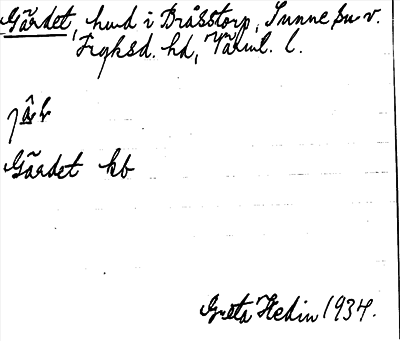 Gärdet, hmd i Bråsstorp, Sunne sn v.
Fryksd. hd, Värml. l.
Gärdet kb
Greta Hedin 1934.